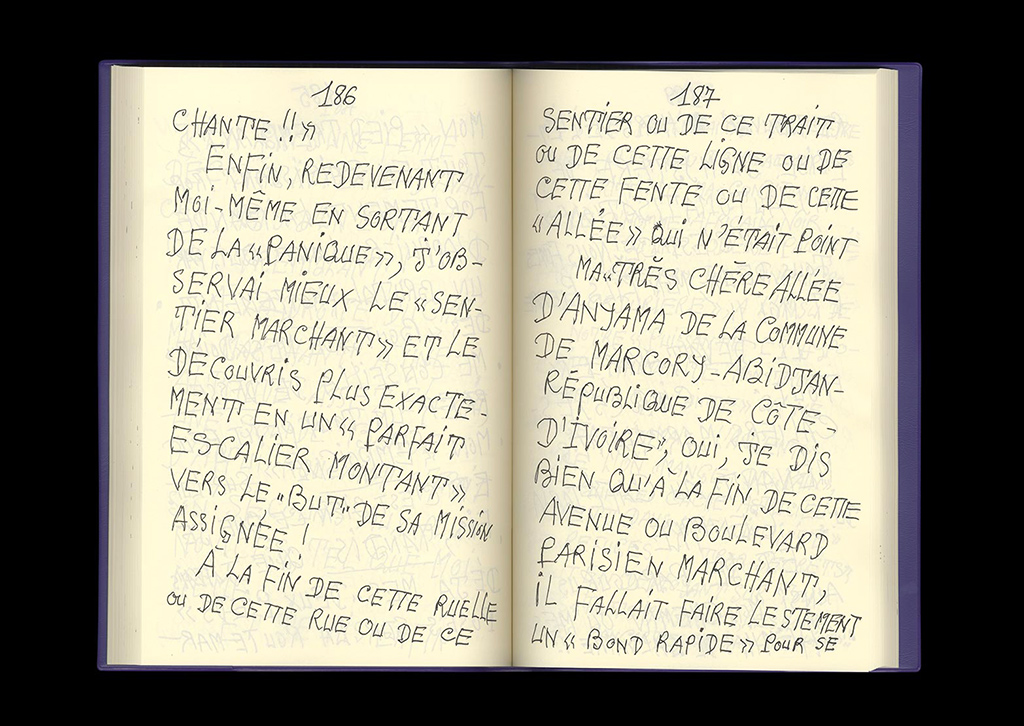 186
CHANTE !!»
ENFIN, REDEVENANT
MOI-MÊME EN SORTANT
DE LA «PANIQUE», J'OB-
SERVAI MIEUX LE «SEN-
TIER MARCHANT» ET LE
DÉCOUVRIS PLUS EXACTE-
MENT EN UN «PARFAIT
ESCALIER MONTANT»
VERS LE "BUT" DE SA MISSION
ASSIGNÉE !
À LA FIN DE CETTE RUELLE
OU DE CETTE RUE OU DE CE
187
SENTIER OU DE CE TRAIT
OU DE CETTE LIGNE OU DE
CETTE FENTE OU DE CETTE
«ALLÉE» QUI N'ÉTAIT POINT
MA «TRÈS CHÈRE ALLÉE
D'ANYAMA DE LA COMMUNE
DE MARCORY-ABIDJAN-
RÉPUBLIQUE DE CÔTE-
D'IVOIRE», OUI, JE DIS
BIEN QU'À LA FIN DE CETTE
AVENUE OU BOULEVARD
PARISIEN MARCHANT,
IL FALLAIT FAIRE LESTEMENT
UN «BOND RAPIDE» POUR SE